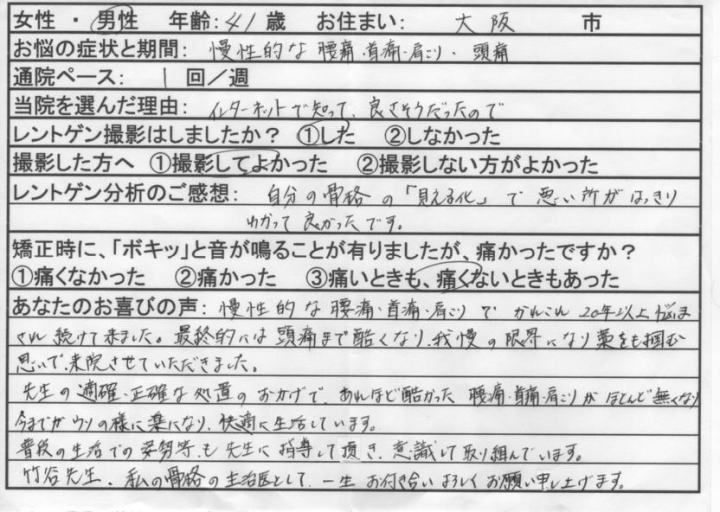 女性 ・ 男性 年齢: 41 歳 お住まい: 大阪 市
お悩の症状と期間: 慢性的な腰痛・首痛・肩こり・頭痛
通院ペース: 1 回/週
当院を選んだ理由: インターネットで知って、良さそうだったので
レントゲン撮影はしましたか? ①した ②しなかった
撮影した方へ ①撮影してよかった ②撮影しない方がよかった
レントゲン分析のご感想: 自分の骨格の「見える化」で悪い所がはっきり
わかって良かったです。
矯正時に、「ボキッ」と音が鳴ることが有りましたが、痛かったですか?
①痛くなかった ②痛かった ③痛いときも、痛くないときもあった
あなたのお喜びの声: 慢性的な腰痛・首痛・肩こりでかれこれ20年以上悩ま
され続けて来ました。最終的には頭痛まで酷くなり、我慢の限界になり藁をも掴む
思いで来院させていただきました。
先生の適確・正確な処置のおかげで、あれほど酷かった腰痛・首痛・肩こりがほとんど無くなり
今までがウソの様に楽になり、快適に生活しています。
普段の生活での姿勢等も先生に指導して頂き、意識して取り組んでいます。
竹谷先生、私の骨格の主治医として、一生お付き合いよろしくお願い申し上げます。